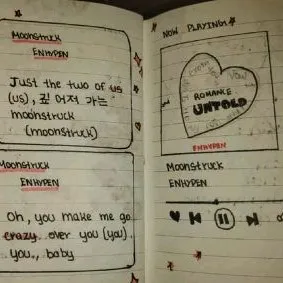 Moonstruck
ENHYPEN
Just the two of us
(us), 깊 어저 가는
moonstruck
(moonstruck)
Moonstruck
ENHYPEN
Oh, you make me go
crazy over you (you)
you, baby
NOW PLAYING:
ROMANCE
UNTOLD
ENHYPEN
Moonstruck
ENHYPEN